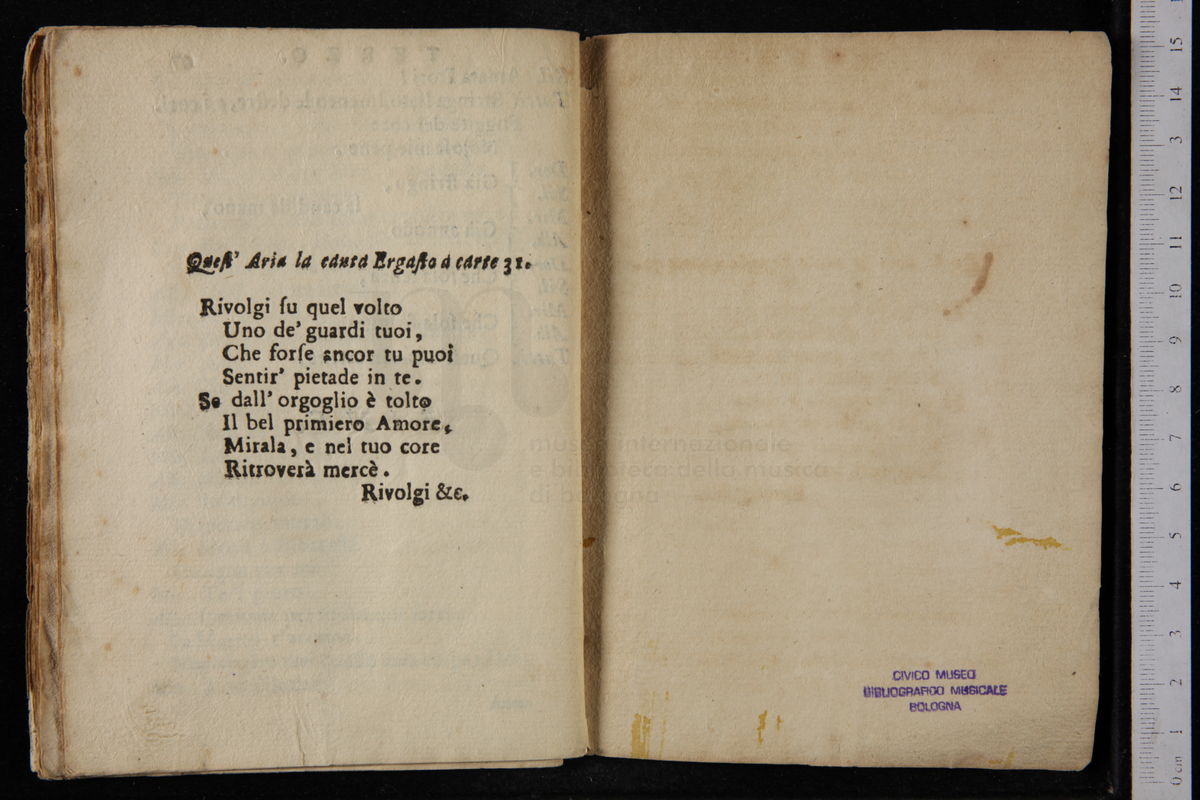 Queſt' Aria la canta Ergaſto à carte 31.
Rivolgi ſu quel volto
Uno de' guardi tuoi,
Che forſe ancor tu puoi
Sentir' pietade in te.
Se dall' orgoglio è tolto
Il bel primiero Amore,
Mirala, e nel tuo core
Ritroverà mercè.
Rivolgi &c.
museo internazionale
e biblioteca della musica
di bologna
CIVICO MUSEO
BIBLIOGRAFICO MUSICALE
BOLOGNA
15
14
13
12
11
10
9
8
7
6
5
4
3
2
1
0 cm